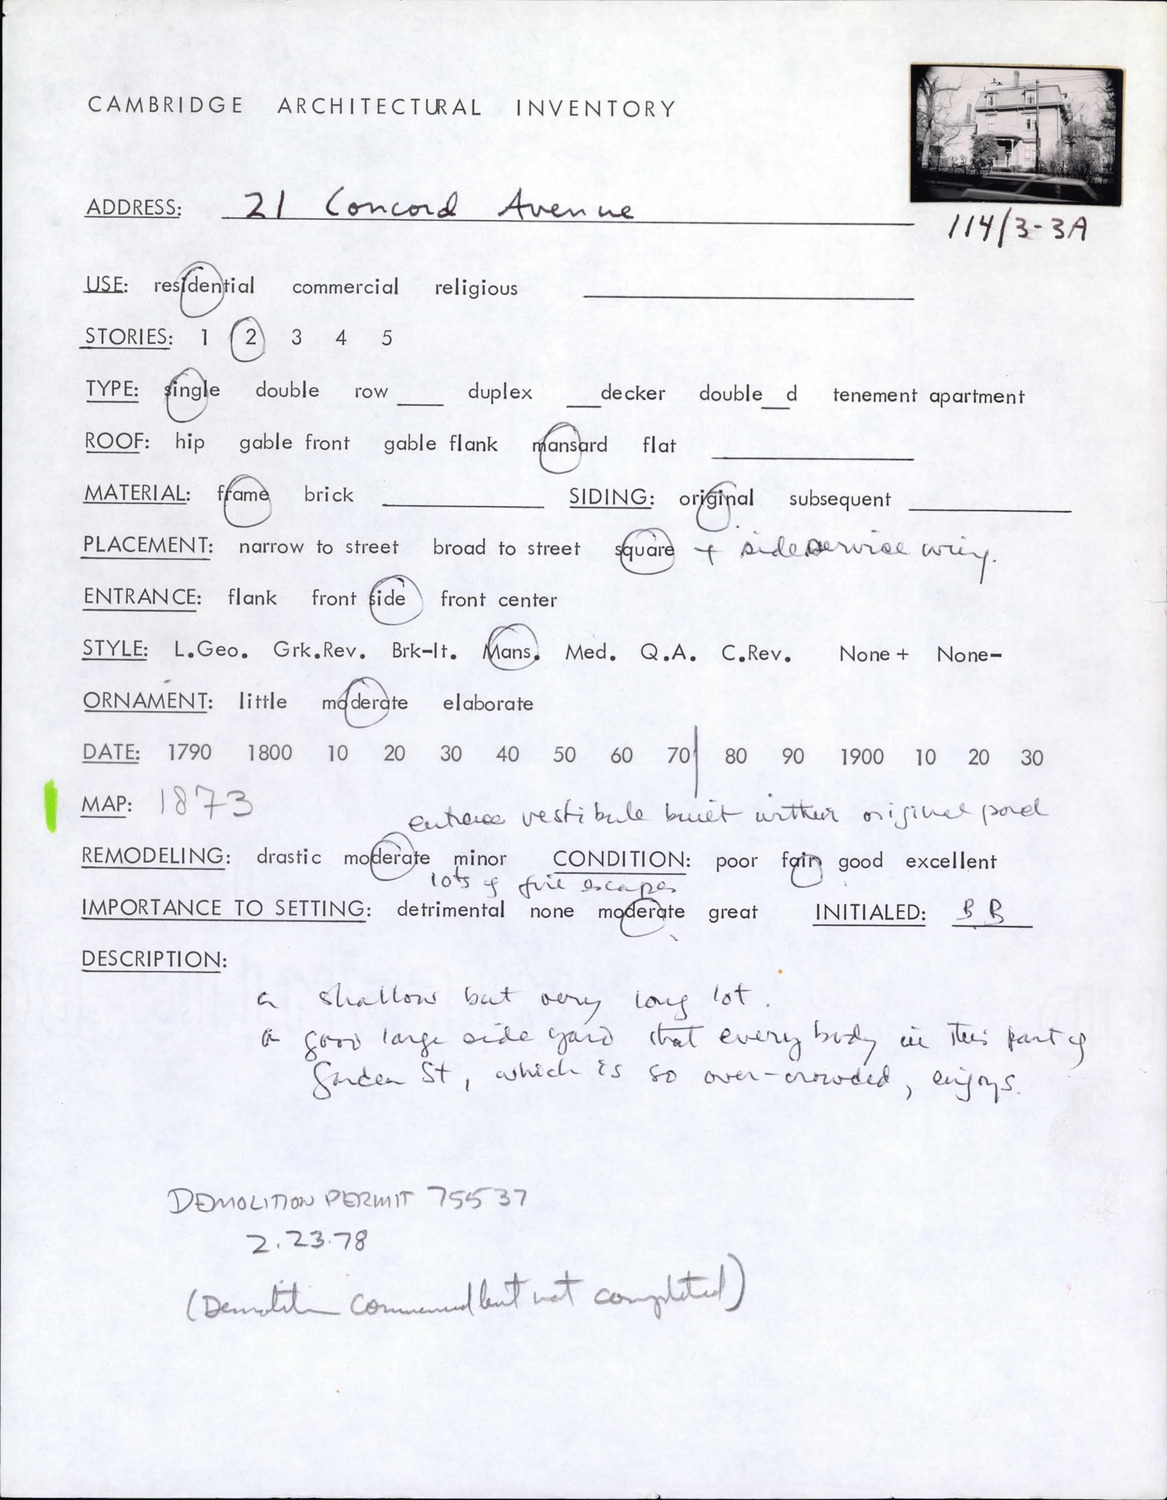 CAMBRIDGE ARCHITECTURAL INVENTORY
ADDRESS: 21 Concord Avenue
114/3-3A
USE: residential commercial religious
STORIES: 1 2 3 4 5
TYPE: single double row ____ duplex ___decker double__d tenement apartment
ROOF: hip gable front gable flank mansard flat
MATERIAL: frame brick SIDING: original subsequent
PLACEMENT: narrow to street broad to street square + side service wing.
ENTRANCE: flank front side front center
STYLE: L.Geo. Grk.Rev. Brk-It. Mans. Med. Q.A. C.Rev. None+ None-
ORNAMENT: little moderate elaborate
DATE: 1790 1800 10 20 30 40 50 60 70 80 90 1900 10 20 30
MAP: 1873
entrance vestibule built within original
REMODELING: drastic moderate minor CONDITION: poor fair good excellent
lots of fire escapes
IMPORTANCE TO SETTING: detrimental none moderate great INITIALED: BB
DESCRIPTION:
a shallow but very long lot.
a good large side yard that everybody in this part of
Garden St, which is so over-crowded, enjoys.
DEMOLITION PERMIT 75537
2.23.78
(Demolition commenced but not completed)